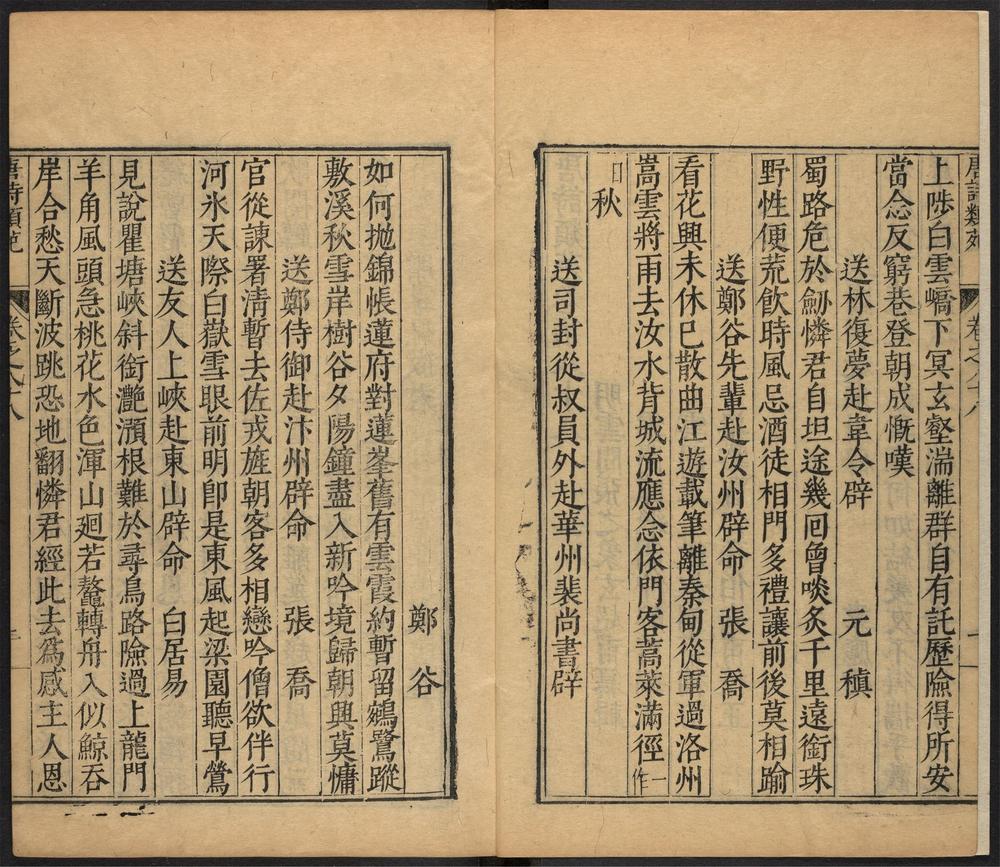 唐詩類苑 卷之六八 一
上陟白雲嶠下冥玄壑湍離群自有託歷險得所安
當念反窮巷登朝成慨嘆
送林復夢赴韋令辟 元稹
蜀路危於劒憐君自坦途幾囘曾啖炙千里遠銜珠
野性便荒飲時風忌酒徒相門多禮讓前後莫相踰
送鄭谷先輩赴汝州辟命 張喬
看花興未休已散曲江遊載筆離秦甸從軍過洛州
嵩雲將雨去汝水背城流應念依門客蒿萊滿徑一作
秋
送司封從叔員外赴華州裴尚書辟
鄭谷
如何抛錦帳蓮府對蓮峯舊有雲霞約暫留鵷鷺蹤
敷溪秋雪岸樹谷夕陽鐘盡入新吟境歸朝興莫慵
送鄭侍御赴汴州辟命 張喬
官從諫署清暫去佐戎旌朝客多相戀吟僧欲伴行
河氷天際白嶽雪眼前明卽是東風起梁園聽早鶯
送友人上峽赴東山辟命 白居易
見說瞿塘峽斜銜灔澦根難於尋鳥路險過上龍門
羊角風頭急桃花水色渾山廻若鼇轉舟入似鯨吞
岸合愁天斷波跳恐地翻憐君經此去爲感主人恩
唐詩類苑